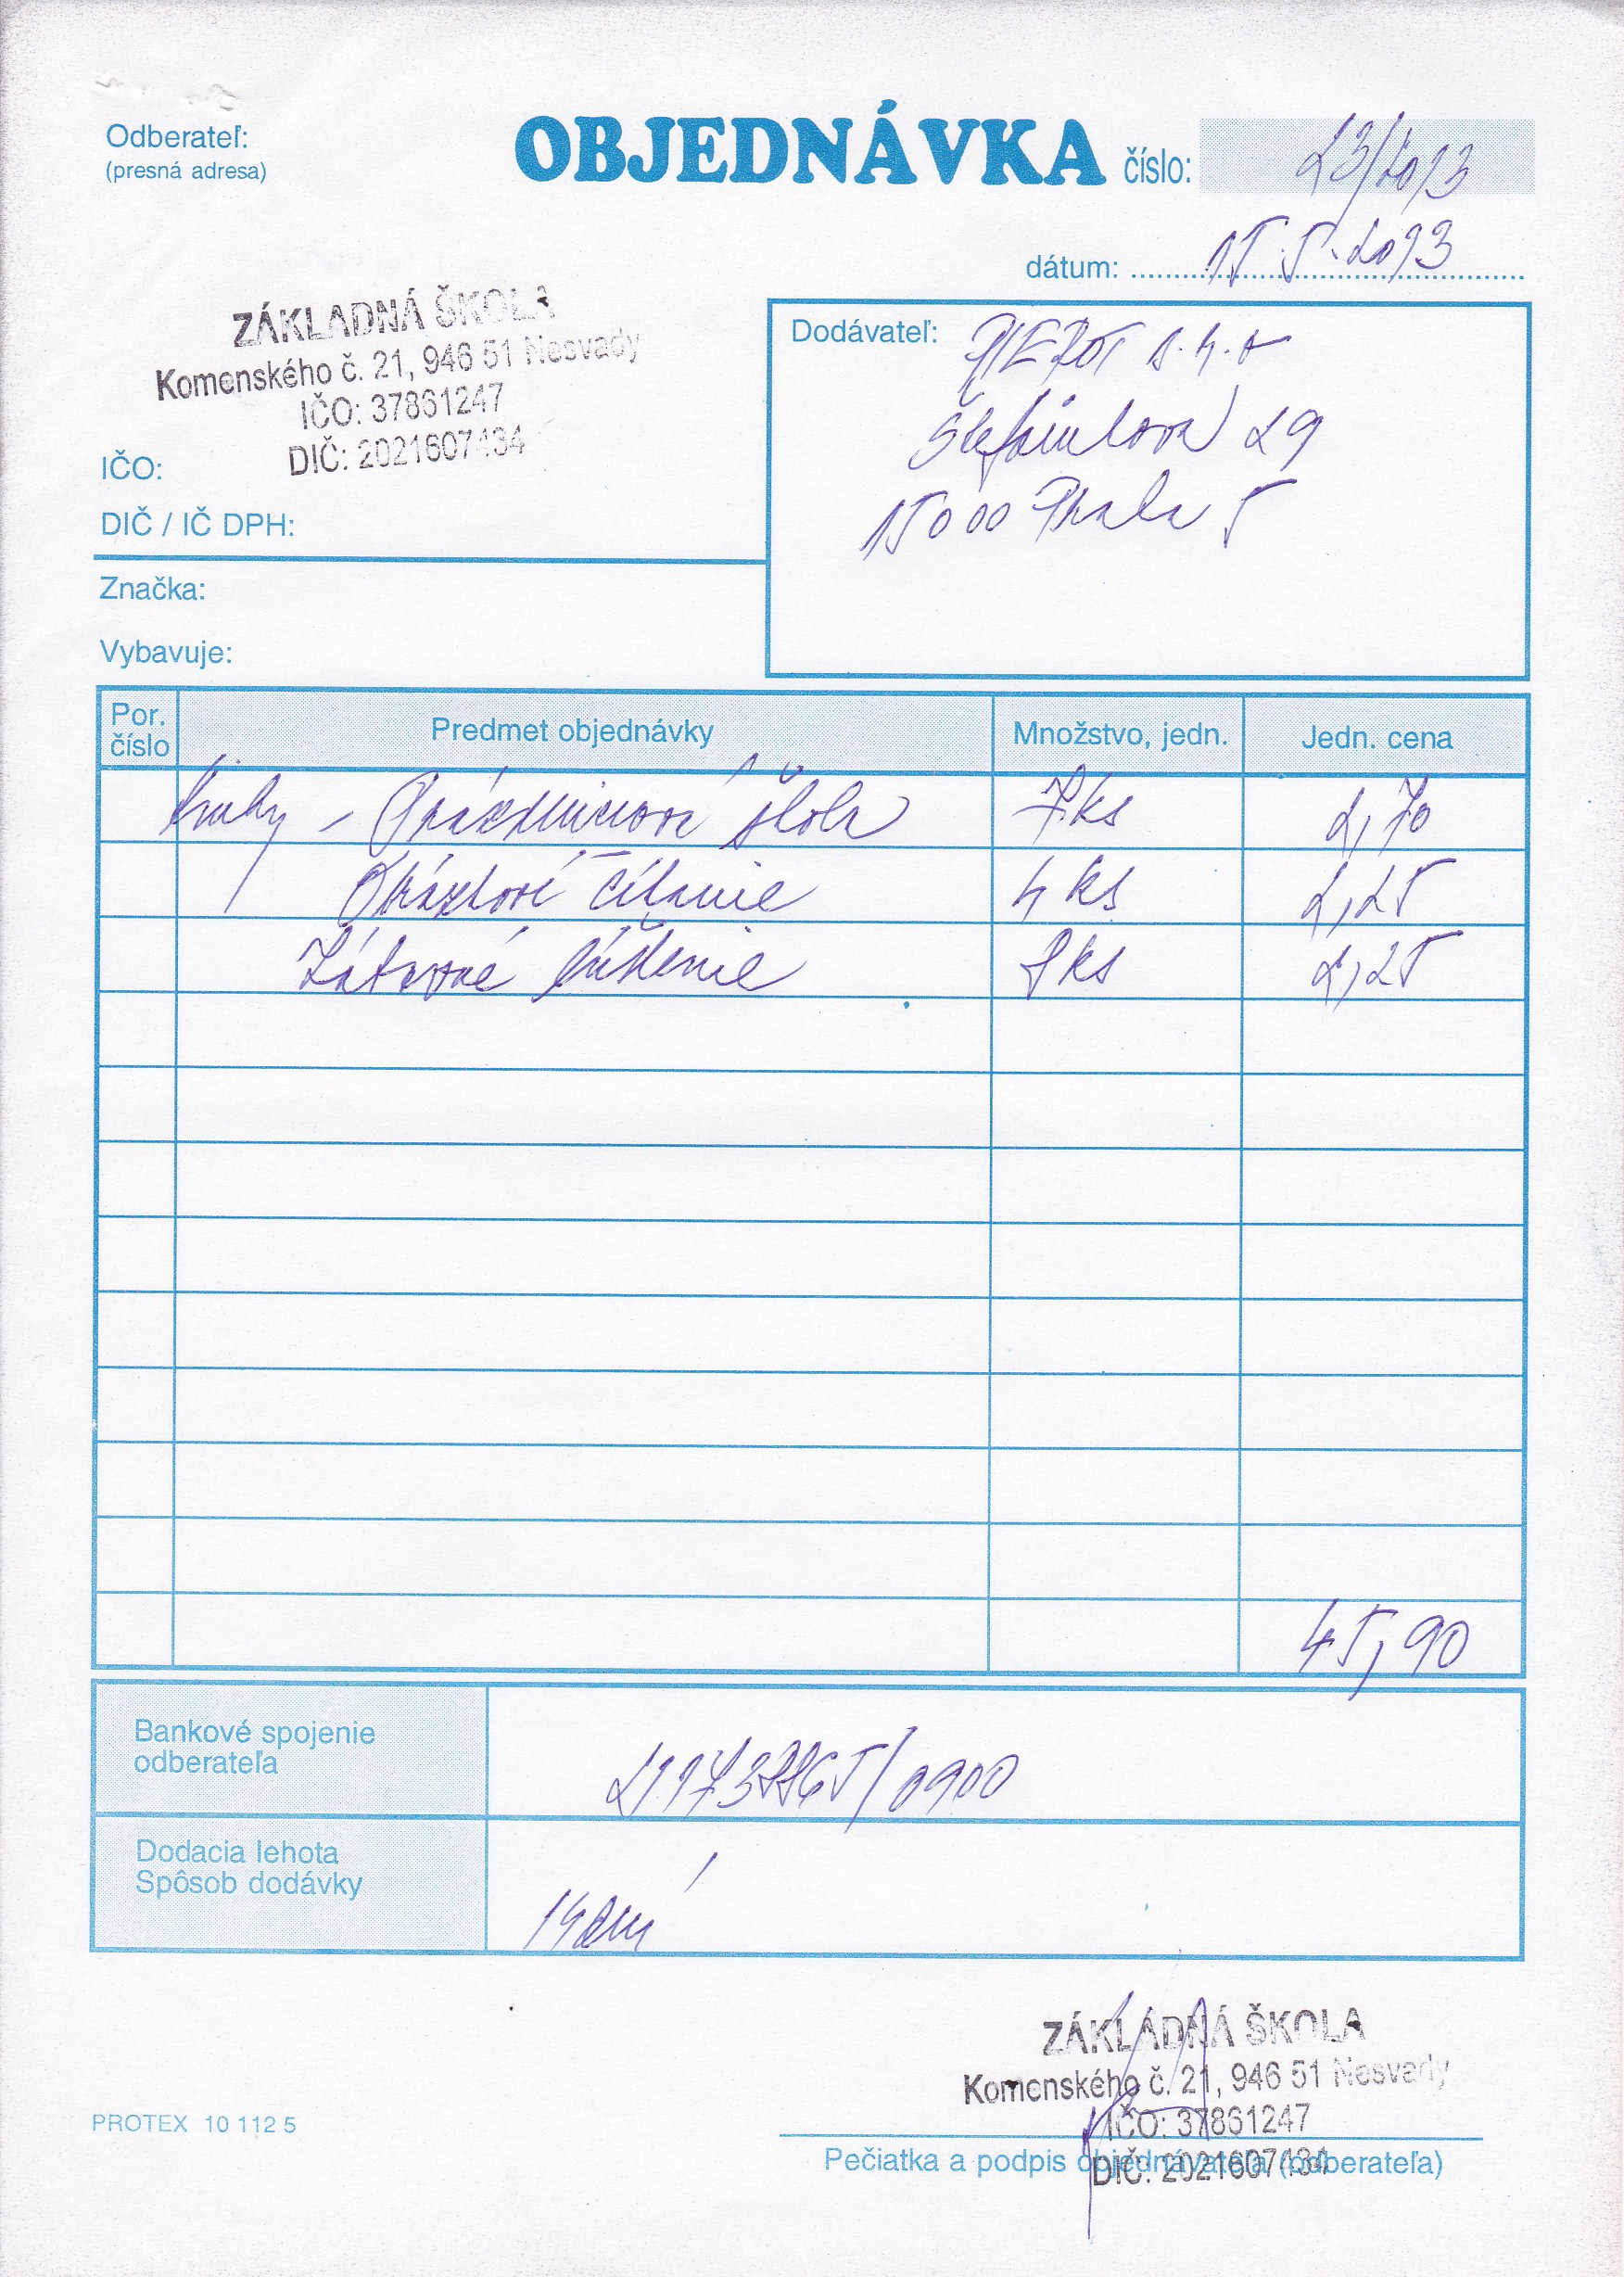 Odberateľ:
(presná adresa)
OBJEDNÁVKA číslo: 23/2013
dátum: 15.5.2013
ZÁKLADNÁ ŠKOLA
Komenského č. 21, 946 51 Nesvady
IČO: 37861247
DIČ: 2021607434
IČO:
DIČ / IČ DPH:
Značka:
Vybavuje:
Dodávateľ: PIEROT s.r.o
Štefánikova 29
15000 Praha 5
Por. číslo Predmet objednávky Množstvo, jedn. Jedn. cena
knihy - Prázdninová škola 7ks 2,70
Obrázkové čítanie 4 ks 2,25
Zábavné 8ks 2,25
45,90
Bankové spojenie
odberateľa
/0900
Dodacia lehota
Spôsob dodávky
14 dní
ZÁKLADNÁ ŠKOLA
Komenského č. 21, 946 51 Nesvady
IČO: 37861247
DIČ: 2021607434
Pečiatka a podpis objednávateľa (odberateľa)
PROTEX 10 112 5